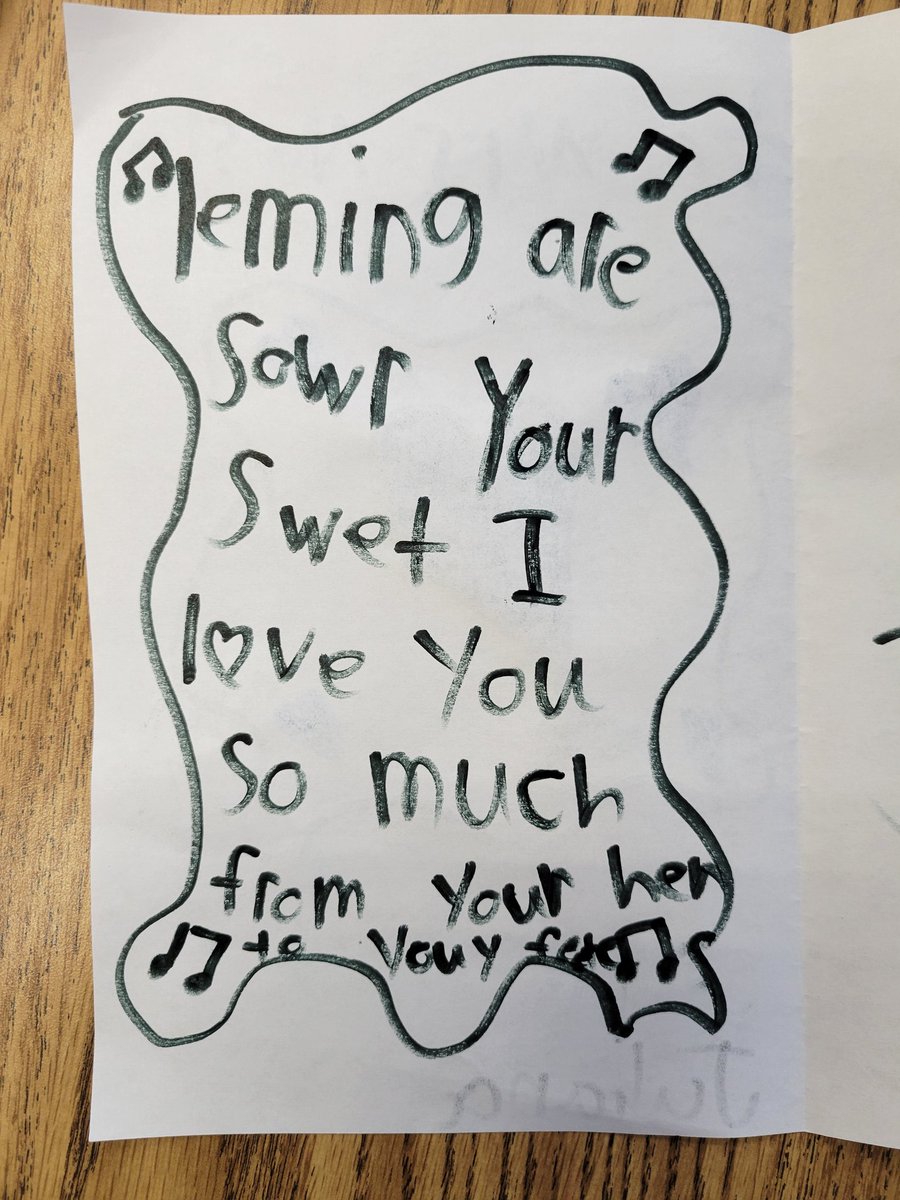 leming are
Sowr Your
Swet I
love You
So much
from Your her
to Youy feet
Juliana